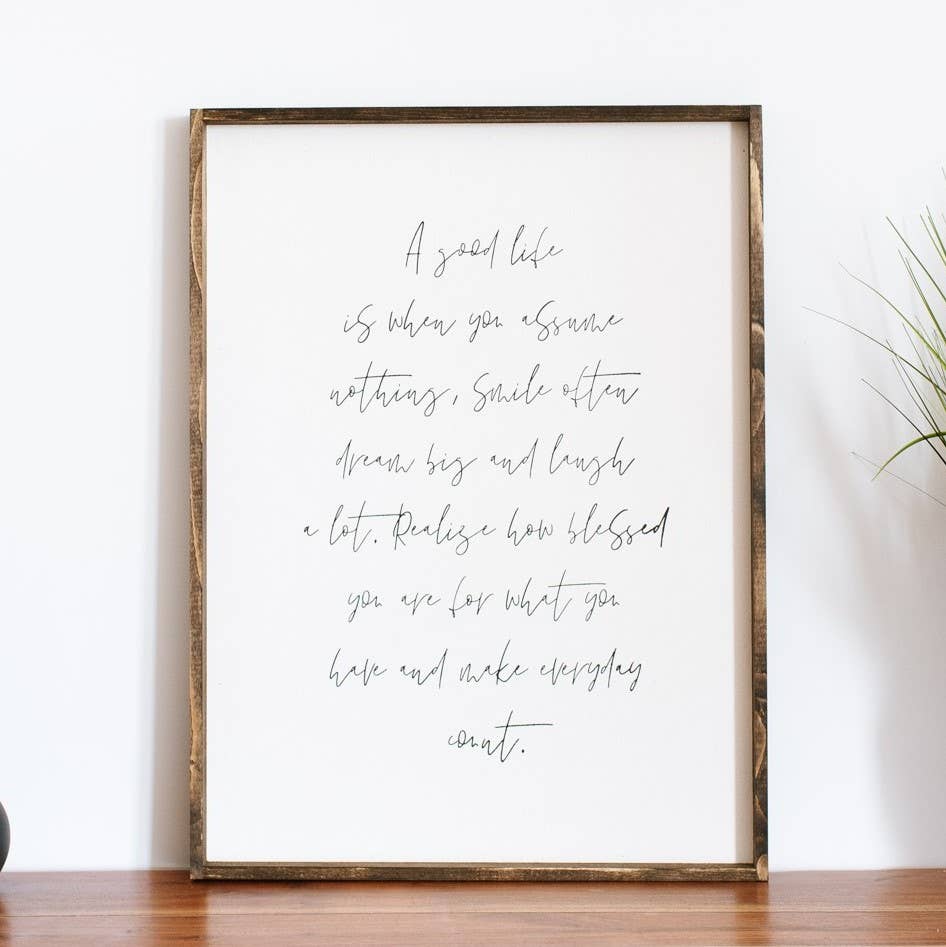 A good life
is when you assume
nothing, Smile often
dream big and laugh
a lot. Realize how blessed
you are for what you
have and make everyday
count.